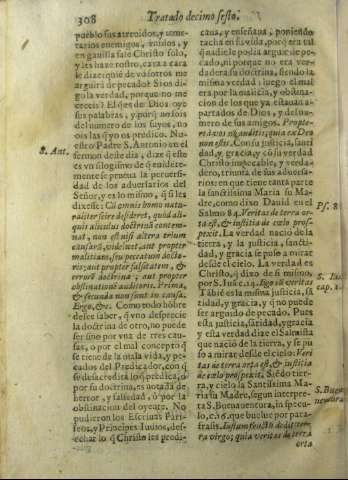 308
Tratado decimo sesto.
pueblo sus atreuidos, y teme-
rarios enemigos, vnidos, y
en gauilla sale Christo solo,
y les haze rostro, cara a cara
le dize: quiē de vosotros me
arguirà de pecado? Si os di-
go la verdad, porque no me
creeis? El q̃ es de Dios oye
sus palabras, y porq̃ no sois
del numero de los suyos, no
ois las q̃ yo os predico. Nu-
estro Padre S. Antonio en el
sermon deste dia, dize q̃ este
es vn silogismo de q̃ euidente-
mente se prueua la peruersi-
dad de los aduersarios del
Señor, y es lo mismo, q̃ si les
dixesse: Cū omnis homo natu-
raliter scire desideret, quòd ali-
quis alicuius doctrinā contem-
nat, non est nisi altera trium
causarū, videlicet, aut propter
malitiam, seu peccatum docto-
ris; aut propter falsitatem, &
errorē doctrinæ; aut propter
obstinationē auditoris. Prima,
& secunda non sunt in causa.
Ergo, &c. Como todo hōbre
desee saber, q̃ vno desprecie
la doctrina de otro, no puede
ser sino por vna de tres cau-
sas, o por el mal concepto q̃
se tiene de la mala vida, y pe-
cados del Predicador, con q̃
se desacredita lo q̃ predica, o
por su doctrina, es notada de
herror, y falsedad, ò por la
obstinacion del oyente. No
pudieron los Escriuas Fari-
seos, y Principes Iudios, des-
echar lo q̃ Christo les predi-
S. Ant.
caua, y enseñaua, poniendo
tacha en su vida, porq̃ era tal
q̃ nadie le podia arguir de pe-
cado, ni porque no era ver-
dadera su doctrina, siendo la
misma verdad; luego el mal
era por la malicia, y obstina-
cion de los que ya estauan a-
partados de Dios, y del nu-
mero de sus amigos. Propte-
rea vos nō auditis; quia ex Deo
non estis. Con su justicia, santi-
dad, y gracia, y cō su verdad
Christo impecable, y verda-
dero, triunfa de sus aduersa-
rios; en que tiene tanta parte
la santissima Maria su Ma-
dre, como dixo Dauid en el
Salmo 84. Veritas de terra or-
ta est, & iustitia de cœlo pros-
pexit. La verdad naciò de la
tierra, y la justicia, santi-
dad, y gracia se puso a mirar
desde el cielo. La verdad es
Christo, q̃ dixo de si mismo,
por S. Iuā c. 14. Ego sū veritas
Tābiē es la misma justicia, sā-
tidad, y gracia, y q̃ no puede
ser arguido de pecado. Pues
esta justicia, sātidad, y gracia
y esta verdad dize el Salmista
que naciò de la tierra, y se pu-
so a mirar desde el cielo: Veri
tas de terra orta est, & iustitia
de cœlo prospexit. Siēdo tier-
ra, y cielo la Santissima Ma-
ria su Madre, segun interpre-
ta S. Buenauentura, in specu-
lo, c. 16. que buelue por para-
frasis. Iustum fructū dedit ter-
ra virgo; quia veritas de terra
orta
Ps. 8
cap. 1